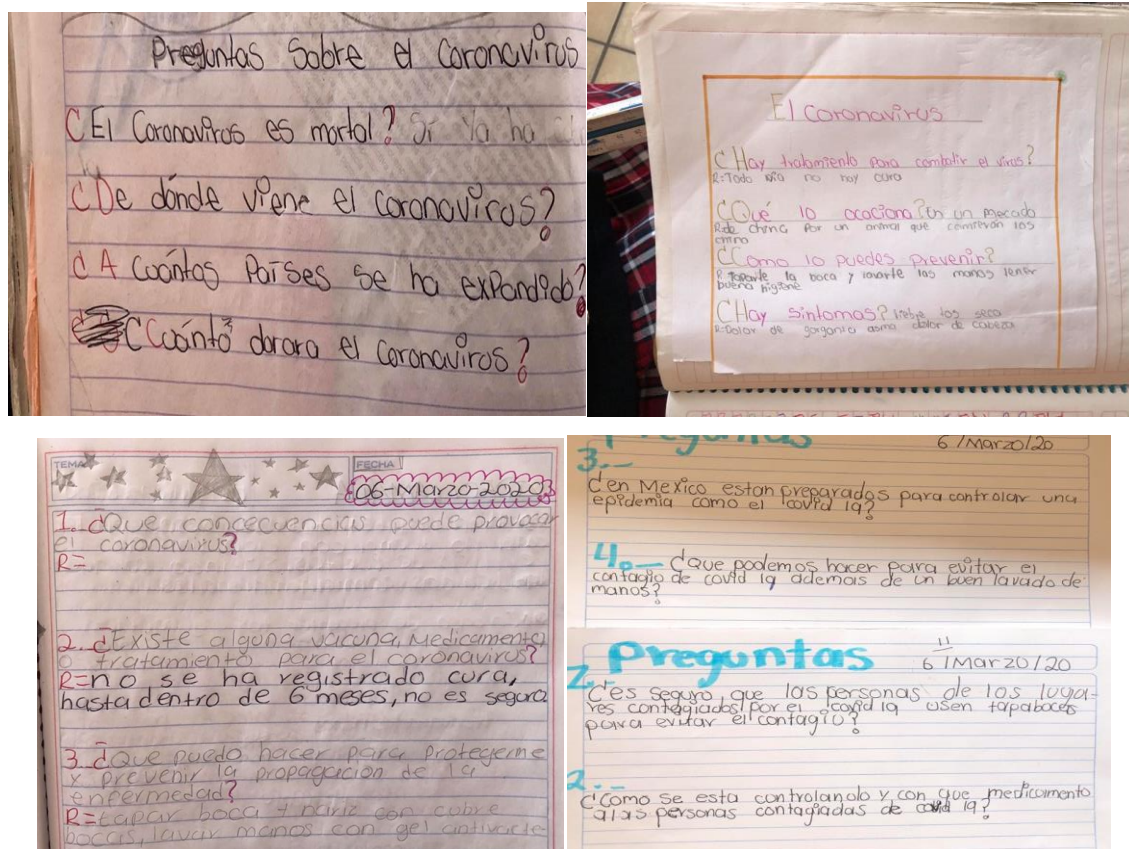 Preguntas Sobre el Coronavirus
¿El Coronavirus es mortal? Si Ya ha
¿De dónde viene el coronavirus?
¿A cuántos Países se ha expandido?
¿Cuánto durara el coronavirus?
El Coronavirus
¿Hay tratamiento para combatir el virus?
R=Todo Via no hay cura
¿Qué lo ocaciona? En un mercado
R=de china Por un animal que comieron los
chino
¿Como lo puedes prevenir?
R=Taparte la boca y lavarte las manos tener
buena higiene
¿Hay sintomas? fiebre tos seca
R=Dolor de garganta asma dolor de cabeza
TEMA
FECHA
06-Marzo-2020
1. ¿Que concecuencias puede provocar
el coronavirus?
R=
2. ¿Existe alguna vacuna, Medicamento
o tratamiento para el coronavirus?
R=no se ha registrado cura,
hasta dentro de 6 meses, no es seguro
3. ¿Que puedo hacer para Protegerme
y prevenir la propagación de la
enfermedad?
R=tapar boca + nariz con cubre
bocas, lavar manos con gel
Preguntas
6 /Marzo/20
3.-
¿en Mexico estan preparados para controlar una
epidemia como el covid 19?
4.- ¿Que podemos hacer para evitar el
contagio de covid 19 ademas de un buen lavado de
manos?
Preguntas
11
6 /Marzo/20
¿es seguro que las personas de los luga-
res contagiados por el covid 19 usen tapabocas
para evitar el contagio?
2.-
¿Como se esta controlanolo y con que medicamento
a las personas contagiadas de covid 19?